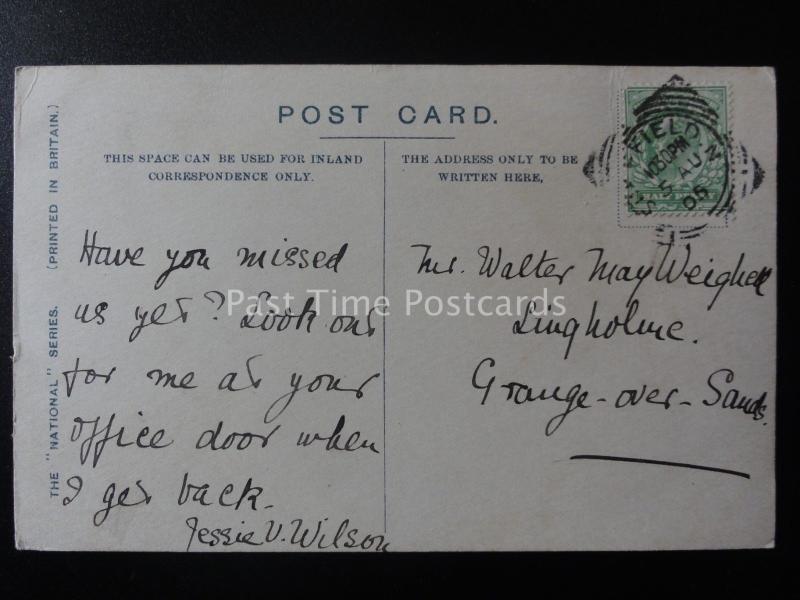 POST CARD.
THIS SPACE CAN BE USED FOR INLAND
CORRESPONDENCE ONLY.
THE ADDRESS ONLY TO BE
WRITTEN HERE,
THE "NATIONAL" SERIES. (PRINTED IN BRITAIN.)
Have you missed
us yet? Look out
for me at your
office door when
I get back.
Jessie V. Wilson
Mr. Walter May Weighell
Lingholme.
Grange-over-Sands.
FIELD
1030PM
5 AU
05
Past Time Postcards